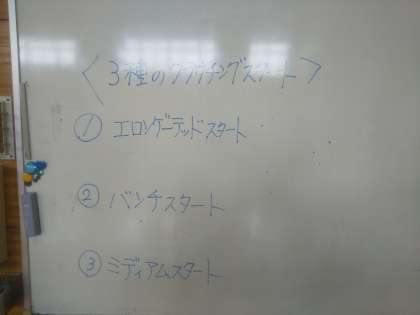 〈3種のクラウチングスタート〉
① エロンゲーテッドスタート
② バンチスタート
③ ミディアムスタート